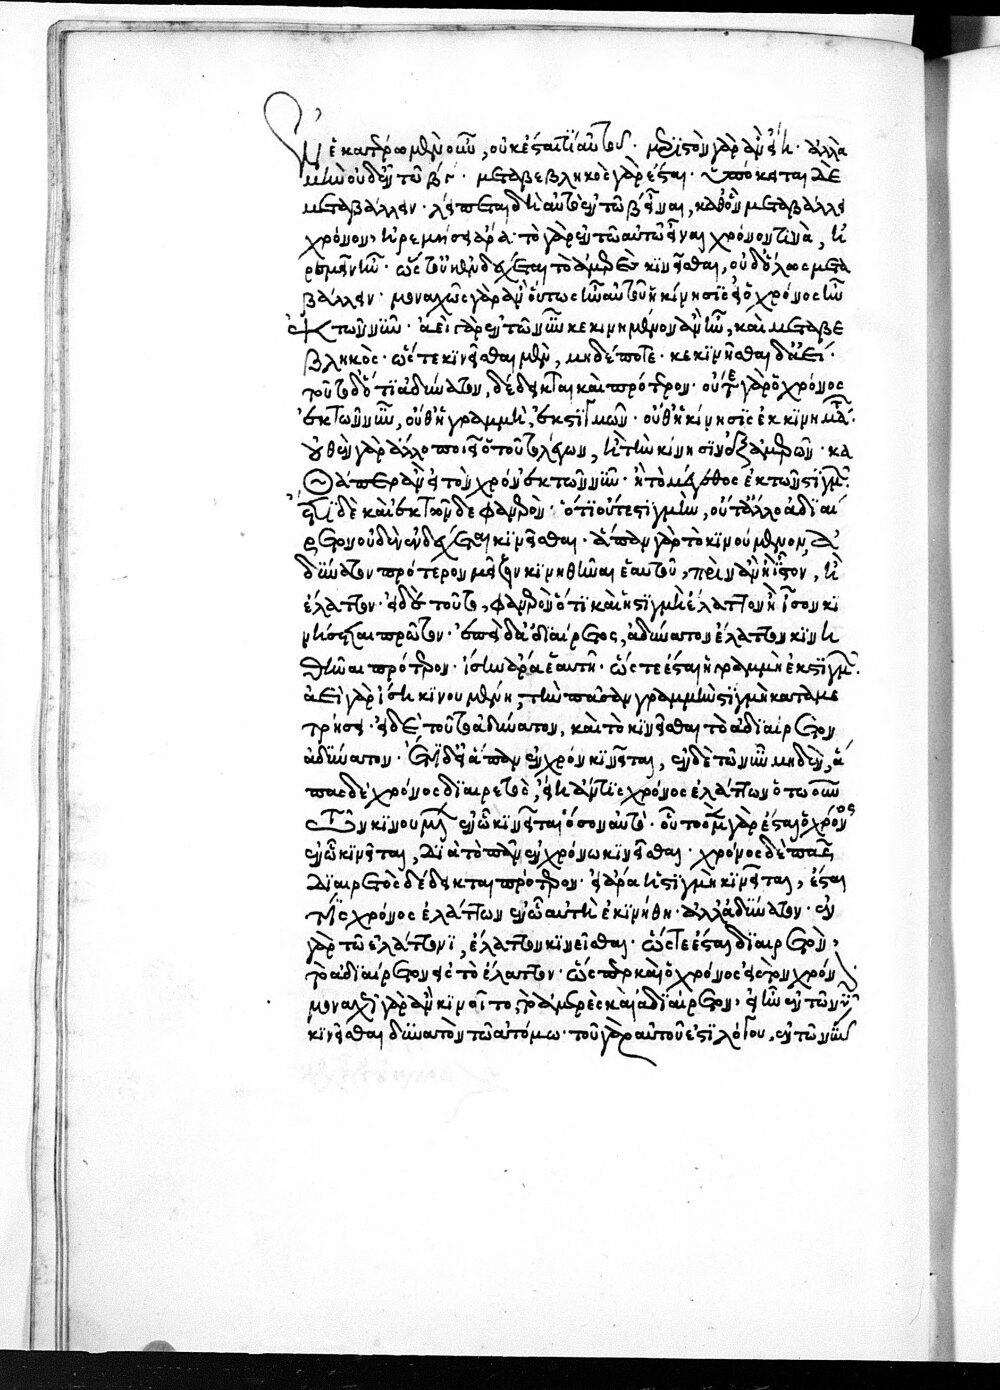 Ἐν ἑκατέρω μὲν οὖν, οὐκ ἔσται τι αὐτοῦ· μεριστὸν γὰρ ἂν εἴη· ἀλλὰ
μὴν οὐδ' ἐν τῶ βγ· μεταβεβληκὸς γὰρ ἔσται· ὑπόκειται δὲ
μεταβάλλειν· λείπεται δὴ αὐτὸ ἐν τῶ βʹ εἶναι, καθ' ὃν μεταβάλλει
χρόνον· ἠρεμήσει ἄρα· τὸ γὰρ ἐν τῶ αὐτῶ εἶναι χρόνον τινὰ, ἠ
ρεμεῖν ἦν· ὥστ' οὐκ ἐνδέχεται τὸ ἀμερὲς κινεῖσθαι, οὐδ' ὅλως μετα
βάλλειν· μοναχῶς γὰρ ἂν οὕτως ἦν αὐτοῦ ἡ κίνησις εἰ ὁ χρόνος ἦν
ἐκ τῶν νῦν· ἀεὶ γὰρ ἐν τῶ νῦν κεκινημένον ἂν ἦν, καὶ μεταβε
βληκός· ὥστε κινεῖσθαι μὲν, μηδέποτε· κεκινῆσθαι δ' ἀεί·
τοῦτο δ' ὅτι ἀδύνατον, δέδεικται καὶ πρότερον· οὔτε γὰρ ὁ χρόνος
ἐκ τῶν νῦν, οὔθ' ἡ γραμμὴ, ἐκ στιγμῶν· οὔθ' ἡ κίνησις ἐκ κινημάτων·
οὐθὲν γὰρ ἄλλο ποιεῖ ὁ τοῦτο λέγων, ἢ τὴν κίνησιν ἐξ ἀμερῶν· κα
θάπερ ἂν εἰ τὸν χρόνον ἐκ τῶν νῦν· ἢ τὸ μέγεθος ἐκ τῶν στιγμῶν·
ἔτι δὲ καὶ ἐκ τῶνδε φανερὸν· ὅτι οὔτε στιγμὴν, οὔτ' ἄλλο ἀδιαί
ρετον οὐδὲν ἐνδέχεται κινεῖσθαι· ἅπαν γὰρ τὸ κινούμενον, ἀ
δύνατον πρότερον μεῖζον κινηθῆναι ἑαυτοῦ, πρὶν ἂν ἢ ἴσον, ἢ
ἔλαττον· εἰ δὲ τοῦτο, φανερὸν ὅτι καὶ ἡ στιγμὴ ἔλαττον ἢ ἴσον κι
νήσεται πρῶτον· ἐπεὶ δ' ἀδιαίρετος, ἀδύνατον ἔλαττον κινη
θῆναι πρότερον· ἴσην ἄρα ἑαυτῆ· ὥστε ἔσται ἡ γραμμὴ ἐκ στιγμῶν·
ἀεὶ γὰρ ἴση κινουμένη, τὴν πᾶσαν γραμμὴν στιγμὴ καταμε
τρήσει· εἰ δὲ τοῦτο ἀδύνατον, καὶ τὸ κινεῖσθαι τὸ ἀδιαίρετον
ἀδύνατον· Ἔτι δ' εἰ ἅπαν ἐν χρόνω κινεῖται, ἐν δὲ τῶ νῦν μηδὲν, ἅ
πας δὲ χρόνος διαιρετὸς, εἴη ἄν τις χρόνος ἐλάττων ὁτωοῦν
τῶν κινουμένων ἐν ὧ κινεῖται ὅσον αὐτό· οὗτος μὲν γὰρ ἔσται ὁ χρόνος
ἐν ὧ κινεῖται, διὰ τὸ πᾶν ἐν χρόνω κινεῖσθαι· χρόνος δὲ πᾶς
διαιρετὸς δέδεικται πρότερον· εἰ ἄρα ἡ στιγμὴ κινεῖται, ἔσται
τις χρόνος ἐλάττων ἐν ὧ αὐτὴ ἐκινήθη· ἀλλ' ἀδύνατον· ἐν
γὰρ τῶ ἐλάττονι, ἔλαττον κινεῖσθαι· ὥστε ἔσται διαιρετὸν,
τὸ ἀδιαίρετον εἰς τὸ ἔλαττον· ὥσπερ καὶ ὁ χρόνος εἰς τὸν χρόνον·
μοναχῆ γὰρ ἂν κινοῖτο, τὸ ἀμερὲς καὶ ἀδιαίρετον, εἰ ἦν ἐν τῶ νῦν
κινεῖσθαι δυνατὸν τῶ ἀτόμω· τοῦ γὰρ αὐτοῦ ἐστὶ λόγου, ἐν τῶ νῦν